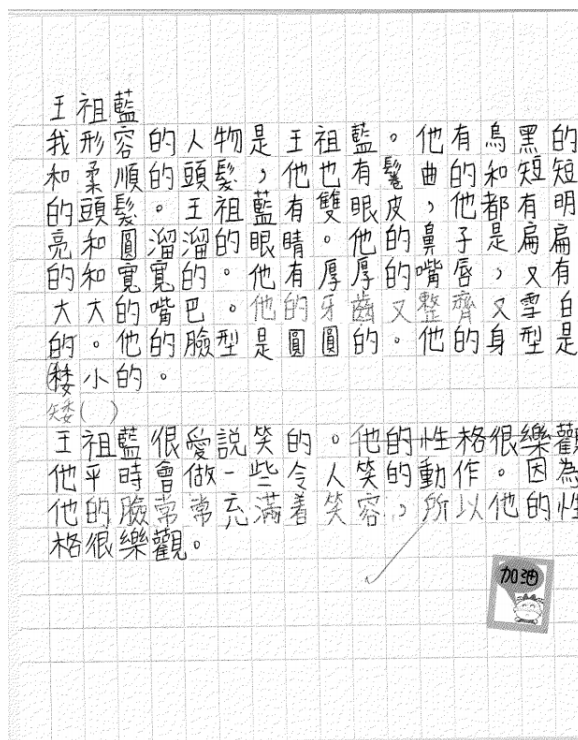 王祖藍
我形容的人物是王祖藍。他有烏黑的
和柔順的頭髮，他也有鬈曲的和短短
的頭髮。王祖藍有雙眼皮，他都有明
亮和圓溜溜的眼睛。他的鼻子是扁扁
的和寬寬的。他有厚厚的嘴唇，又有
大大的嘴巴。他的牙齒又整齊又雪白
的。他的臉型是圓圓的。他的身型是
小的。
矮( )
王祖藍很愛説笑的。他的性格很樂觀
他平時會做一些令人笑的動作。因為
他的臉常常充滿着笑容，所以他的性
格很樂觀。
加油